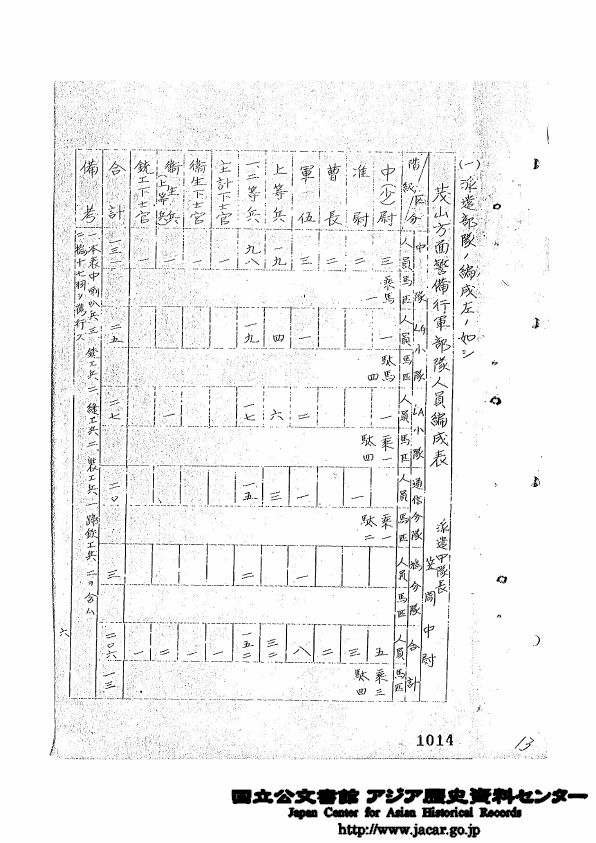 (一)派遣部隊ノ編成左ノ如シ
茂山方面警備行軍部隊人員編成表
派遣中隊長
笠間中尉
階級/区分 中隊 LG小隊 iA小隊 通信分隊 鳩分隊 合計
人員 馬匹 人員 馬匹 人員 馬匹 人員 馬匹 人員 馬匹 人員 馬匹
中(少)尉 三 乗馬一 一 駄馬四 一 乗一 駄四 乗一 駄二 五 乗三 駄四
准尉 二 一 三
曹長 二 二
軍伍 三 一 二 一 一 八
上等兵 一九 四 六 三 三二
一二等兵 九八 一九 一七 一五 二 一五二
主計下士官 一 一
衛生下士官 一 一
衛生兵(上等兵) 一 一 二
銃工下士官 一 一
合計 一三一 二五 二七 二〇 三 二〇六 一三
備考
一本表中喇叭兵三 銃工兵二 縫工兵二 装工兵一 蹄鉄工兵二ヲ含ム
二鳩十七羽ヲ携行ス
六
1014
13
国立公文書館 アジア歴史資料センター
Japan Center for Asian Historical Records
http://www.jacar.go.jp